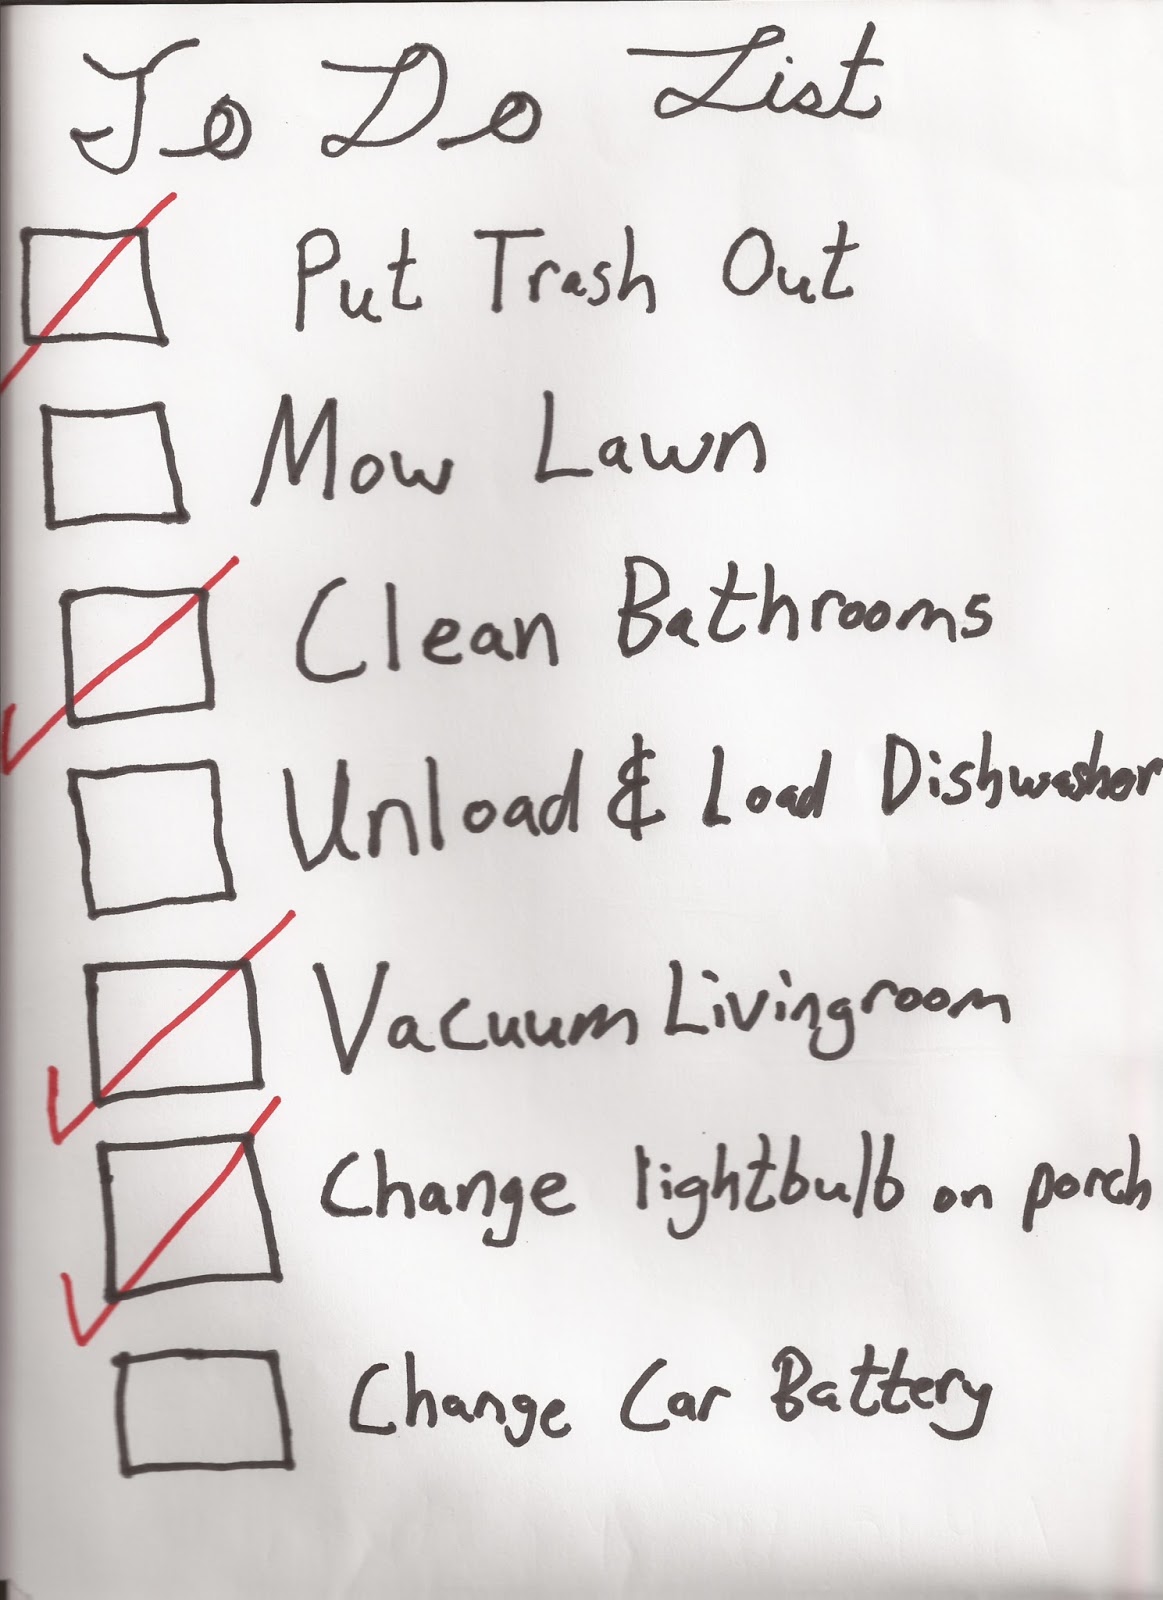 To Do List
Put Trash Out
Mow Lawn
Clean Bathrooms
Unload & Load Dishwasher
Vacuum Livingroom
Change lightbulb on porch
Change Car Battery